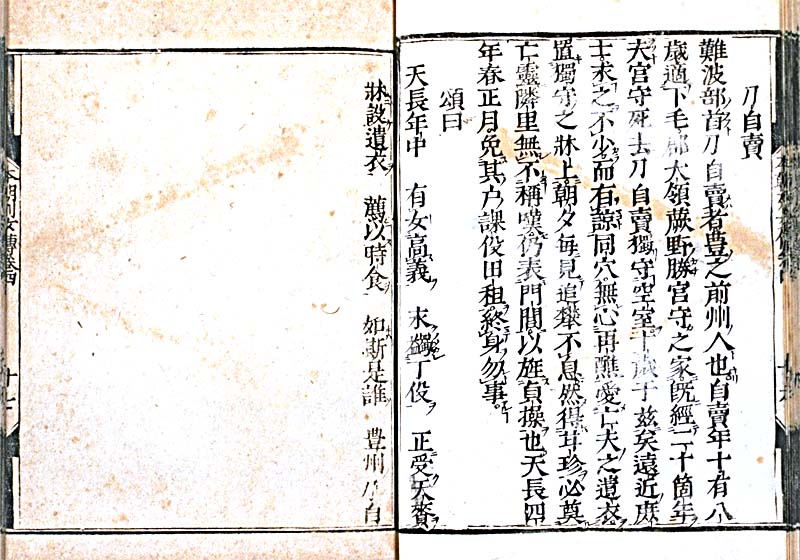 刀自賣
難波部首刀自賣者豊之前州人也自賣年十有八
歲適下毛郡大領蕨野勝宮守之家既經二十箇年
夫宮守死去刀自賣獨守空室十歲于茲矣遠近庶
士求之不少而有諒同穴無心再醮愛亡夫之遺衣
置獨守之牀上朝夕毎見追攀不息然得甘珍必奠
亡靈隣里無不稱嘆仍表門閭以旌貞操也天長四
年春正月免其戸課役田租終身勿事
頌曰
天長年中 有女高義 永蠲丁役 正受天賚
牀設遺衣 薦以時食 如斯是誰 豊州刀自
本朝列女傳卷四 十七